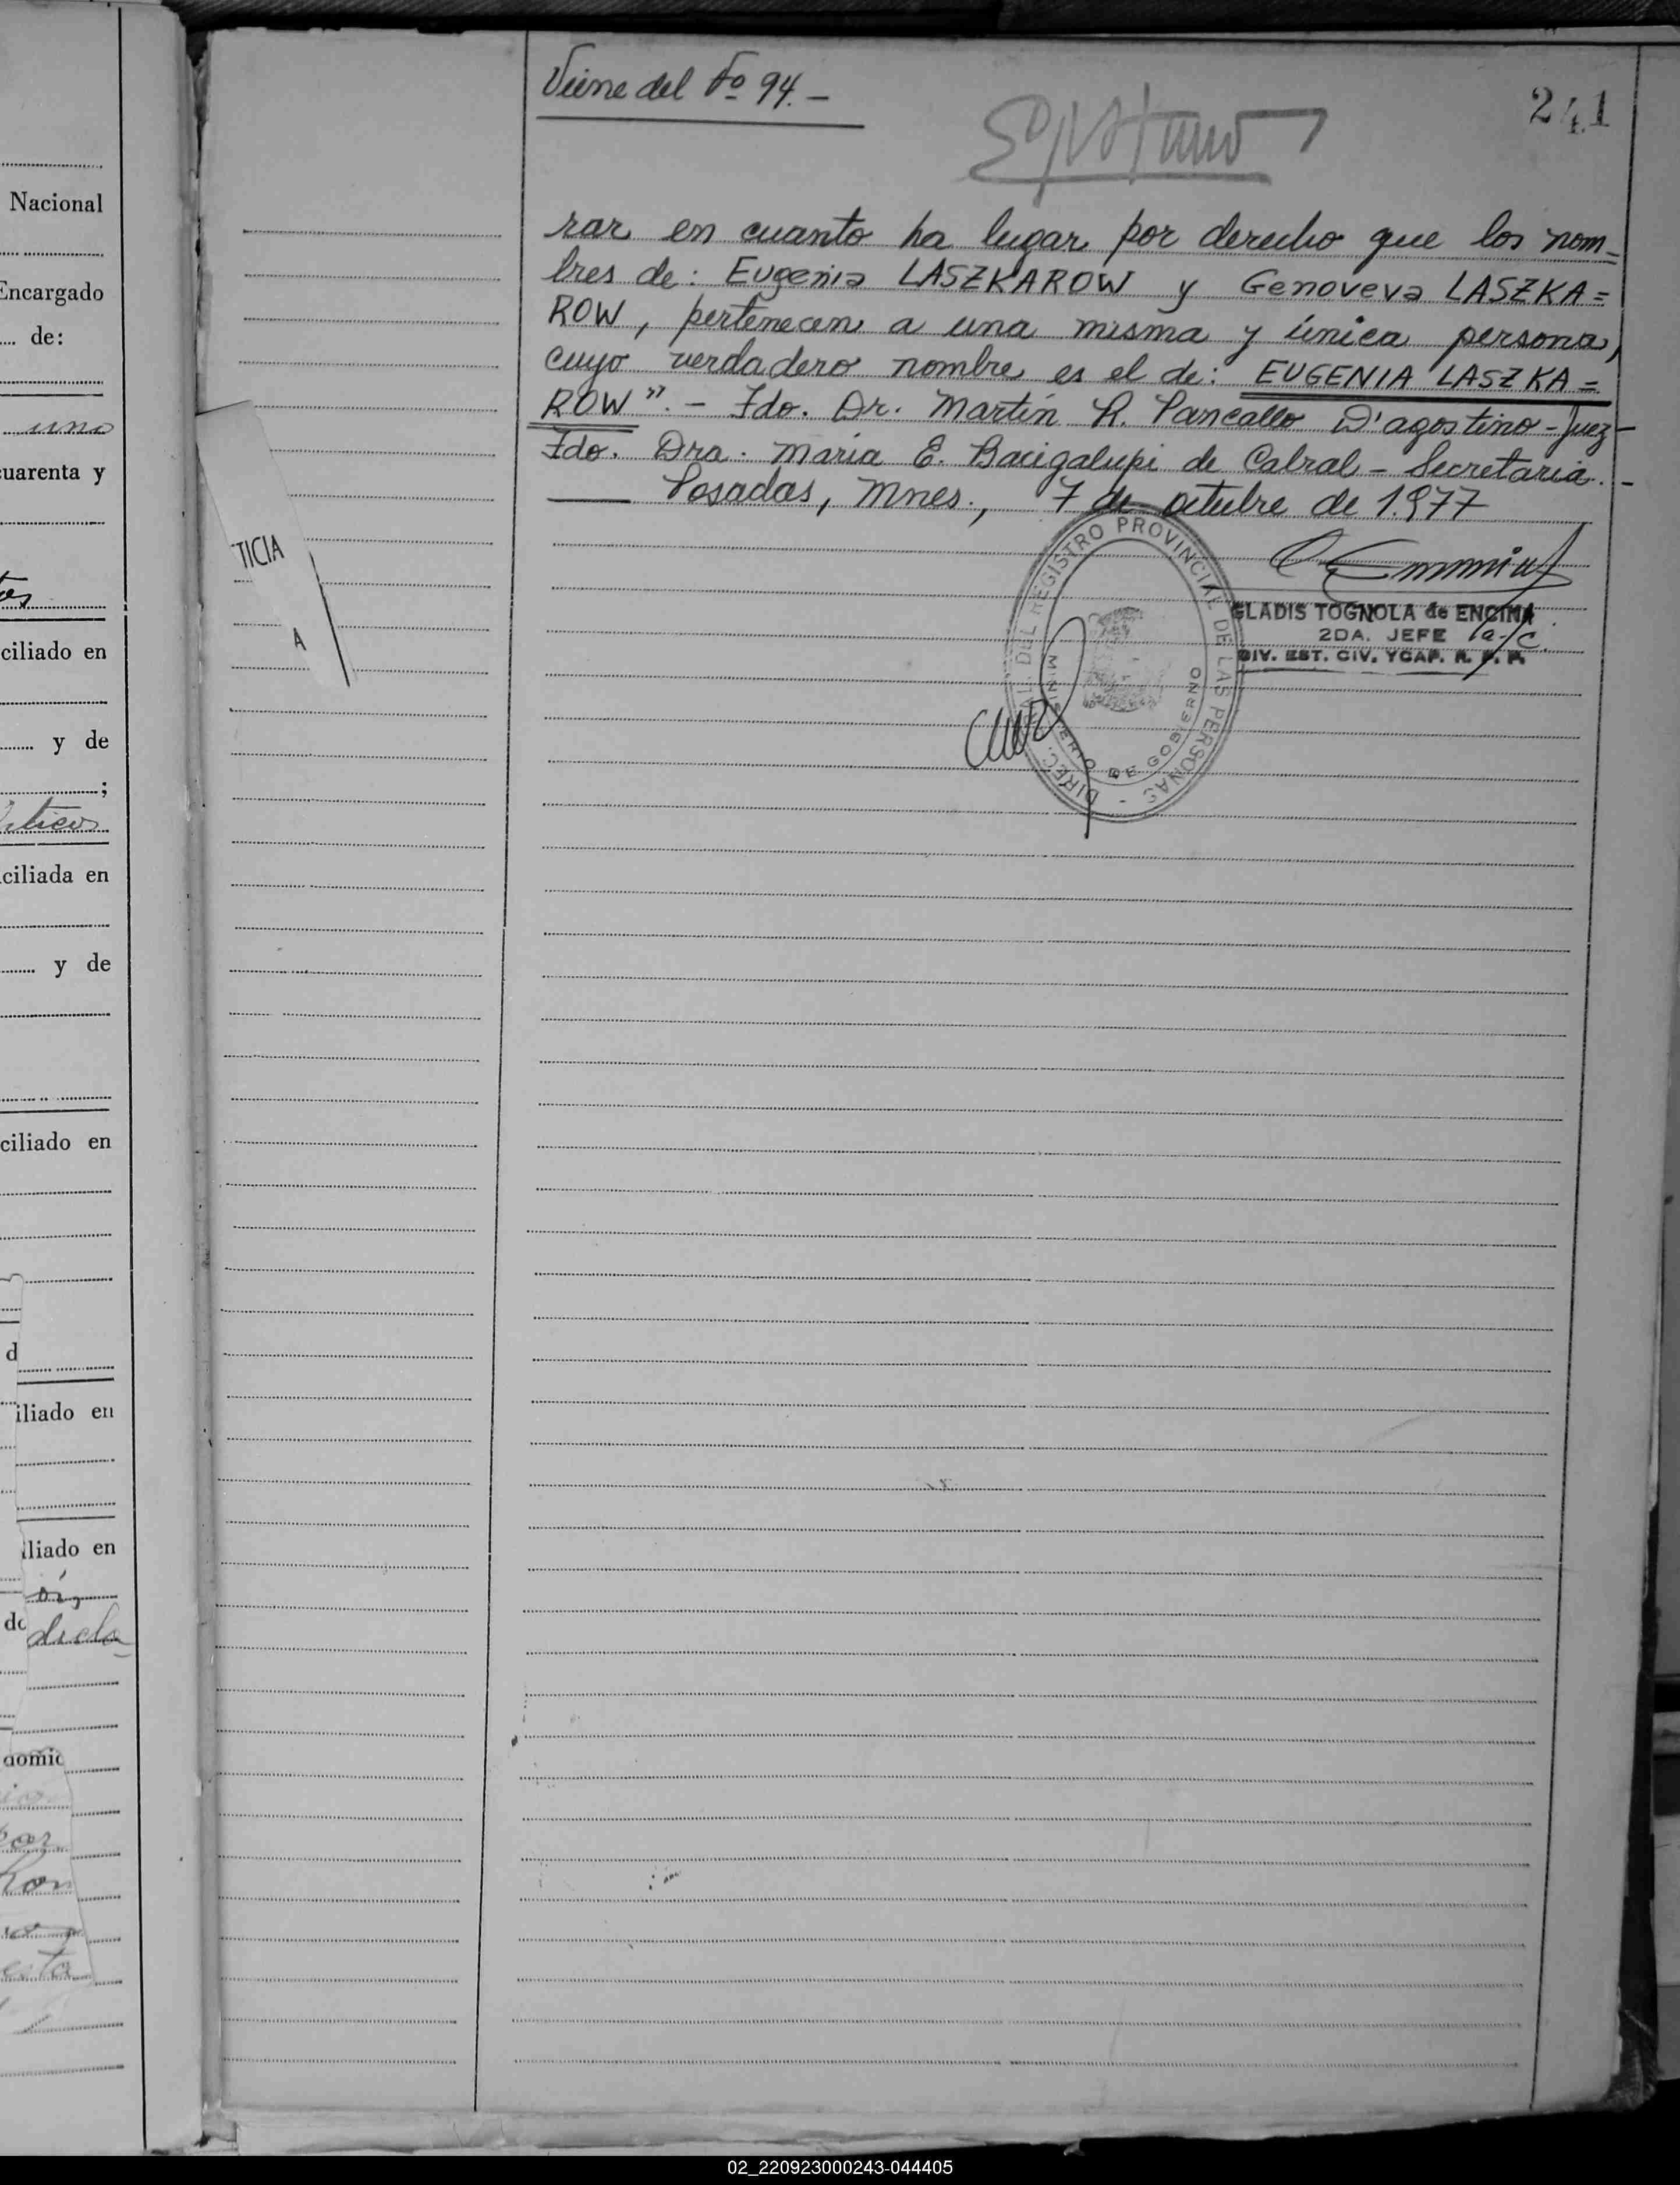 Nacional
Encargado
de:
uno
cuarenta y
ciliado en
y de
;
ciliada en
y de
ciliado en
d
iliado en
iliado en
do
dicla
domic
esta
TICIA
A
Viene del Fº 94.-
241
rar en cuanto ha lugar por derecho que los nom=
bres de: Eugenia LASZKAROW y Genoveva LASZKA=
ROW, pertenecen a una misma y única persona,
cuyo verdadero nombre es el de: EUGENIA LASZKA=
ROW". - Fdo. Dr. Martín R. Pancallo D'agostino - Juez -
Fdo. Dra. María E. Bacigalupi de Cabral - Secretaria. -
Posadas, Mnes., 7 de octubre de 1.977
DIREC. GRAL. DEL REGISTRO PROVINCIAL DE LAS PERSONAS -
MINISTERIO DE GOBIERNO
GLADIS TOGNOLA de ENCINA
2DA. JEFE a/c.
DIV. EST. CIV. YCAP. R. P. P.
02_220923000243-044405